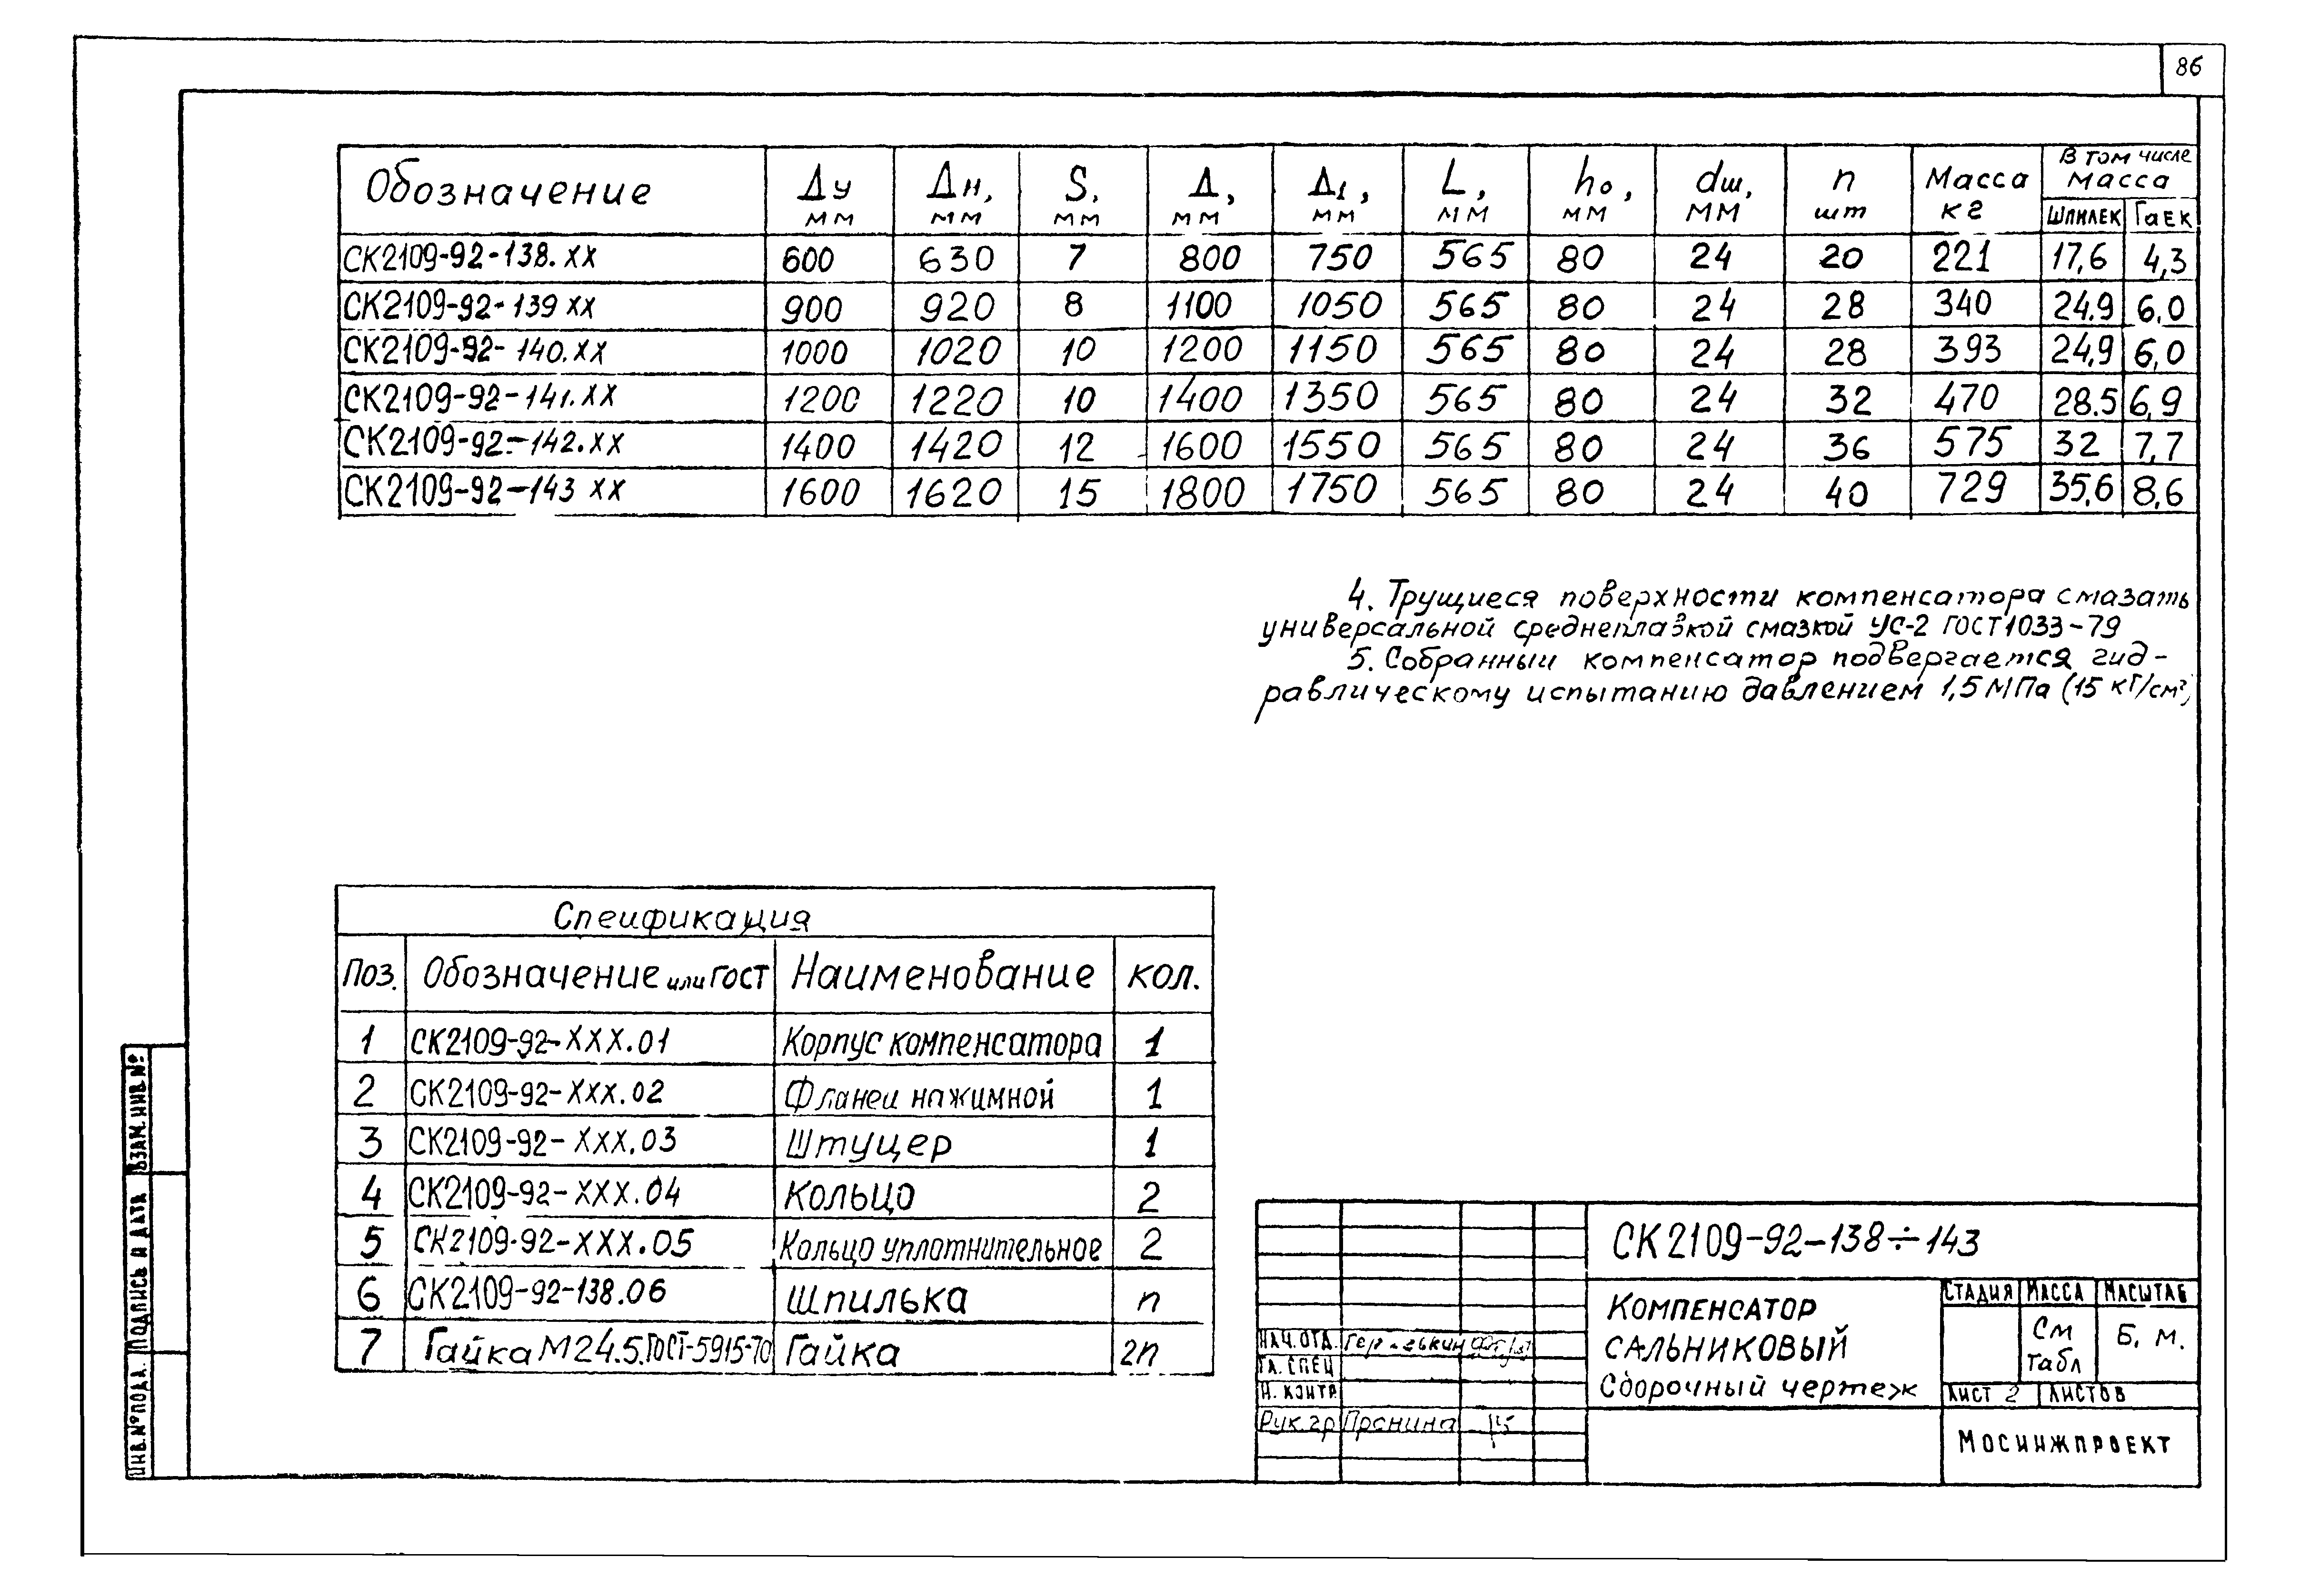 86
Обозначение Ду мм Дн, мм S, мм Д, мм Д1, мм L, мм hо, мм dш, мм n шт Масса кг В том числе масса Шпилек Гаек
СК2109-92-138.XX 600 630 7 800 750 565 80 24 20 221 17,6 4,3
СК2109-92-139 XX 900 920 8 1100 1050 565 80 24 28 340 24.9 6,0
СК2109-92-140.XX 1000 1020 10 1200 1150 565 80 24 28 393 24,9 6,0
СК2109-92-141.XX 1200 1220 10 1400 1350 565 80 24 32 470 28.5 6,9
СК2109-92-142.XX 1400 1420 12 1600 1550 565 80 24 36 575 32 7,7
СК2109-92-143 XX 1600 1620 15 1800 1750 565 80 24 40 729 35.6 8,6
4. Трущиеся поверхности компенсатора смазать
универсальной среднеплавкой смазкой УС-2 ГОСТ1033-79
5. Собранный компенсатор подвергается гид-
равлическому испытанию давлением 1,5МПа (15 кГ/см²)
Спеификация
Поз. Обозначение или ГОСТ Наименование кол.
1 СК2109-92-XXX.01 Корпус компенсатора 1
2 СК2109-92-XXX.02 Фланец нажимной 1
3 СК2109-92-XXX.03 Штуцер 1
4 СК2109-92-XXX.04 Кольцо 2
5 СК2109-92-XXX.05 Кольцо уплотнительное 2
6 СК2109-92-138.06 Шпилька n
7 Гайка М24.5.ГОСТ-5915-70 Гайка 2n
СК2109-92-138÷143
Компенсатор
сальниковый
Сборочный чертеж
Стадия Масса Масштаб
См табл Б. М.
Лист 2 Листов
Мосинжпроект
Нач. отд.
Гл. спец
Н. контр
Рук. гр Пронина
Взам. инв. №
Подпись и дата
Инв. № подл.